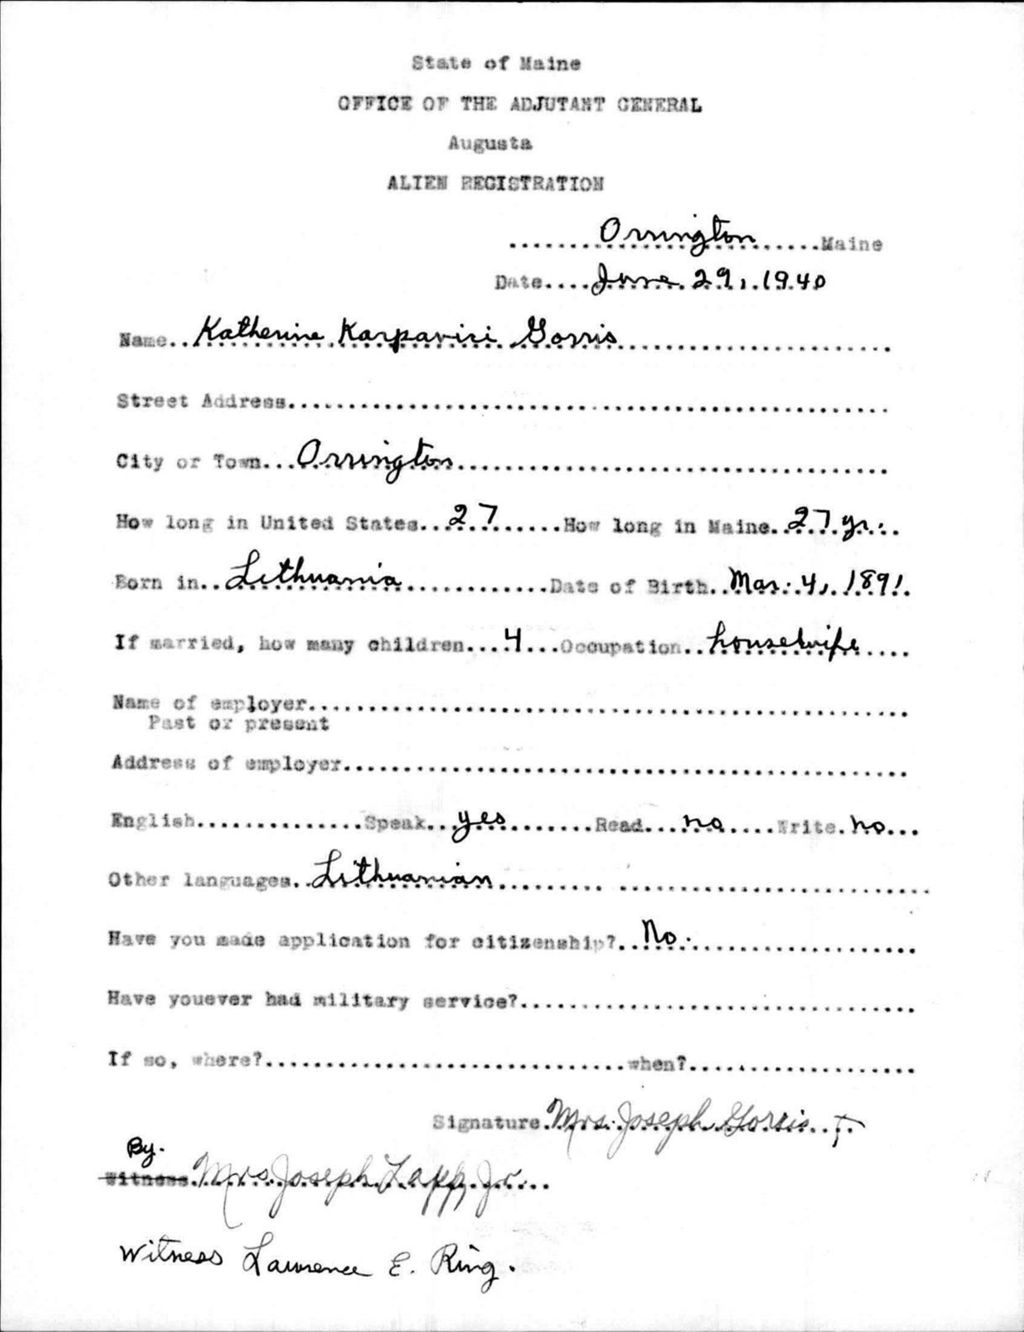 State of Maine
OFFICE OF THE ADJUTANT GENERAL
Augusta
ALIEN REGISTRATION
Orrington Maine
Date June 29, 1940
Name Katherine Karpavici Gorris
Street Address
City or Town Orrington
How long in United States 27 How long in Maine 27 yr.
Born in Lithuania Date of Birth Mar. 4, 1891.
If married, how many children 4 Occupation housewife
Name of employer
Past or present
Address of employer
English Speak yes Read no Write no
Other languages Lithuanian
Have you made application for citizenship? No.
Have youever had military service?
If so, where? when?
Signature Mrs. Joseph Gorris
By.
Witness Mrs Joseph Lapp Jr.
Witness Lawrence E. Ring.